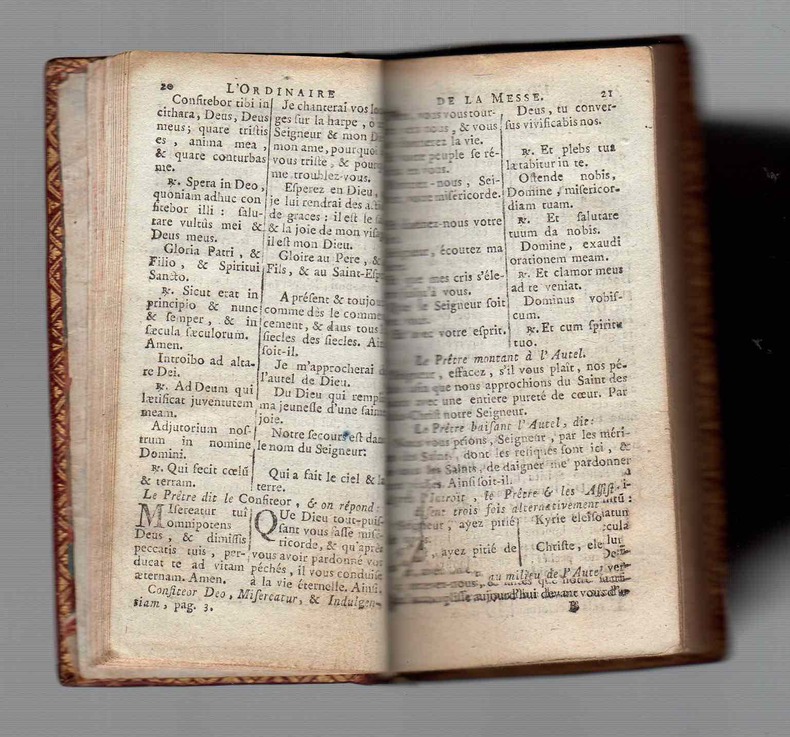 20 L'ORDINAIRE
Confitebor tibi in
cithara, Deus, Deus
meus; quare tristis
es, anima mea,
& quare conturbas
me.
℟. Spera in Deo,
quoniam adhuc con
fitebor illi: salu-
tare vultûs mei &
Deus meus.
Gloria Patri, &
Filio, & Spiritui
Sancto.
℟. Sicut erat in
principio & nunc
& semper, & in
sæcula sæculorum.
Amen.
Introibo ad alta-
re Dei.
℟. Ad Deum qui
lætificat juventutem
meam.
Adjutorium nos-
trum in nomine
Domini.
℟. Qui fecit cœlũ
& terram.
Je chanterai vos
ges sur la harpe, ô
Seigneur & mon
mon ame, pourquoi
vous triste, &
me troublez-vous.
Esperez en Dieu,
je lui rendrai des
de graces: il est le
& la joie de mon
il est mon Dieu.
Gloire au Pere, &
Fils, & au
A présent &
comme dès le
cement, & dans tous
siecles des siecles.
soit-il.
Je m'approcherai
l'autel de Dieu.
Du Dieu qui
ma jeunesse d'une
joie.
Notre secours est dans
le nom du Seigneur:
Qui a fait le ciel & la
terre.
Le Prêtre dit le Confiteor, & on répond:
MIsereatur tuî
omnipotens
Deus, & dimissis
peccatis tuis, per-
ducat te ad vitam
æternam. Amen.
QUe Dieu tout-puis-
sant vous fasse misé-
ricorde, & qu'après
vous avoir pardonné vos
péchés, il vous conduise
à la vie éternelle. Ainsi.
Confiteor Deo, Misereatur, & Indulgen-
tiam, pag. 3.
DE LA MESSE. 21
vous tour-
nous, & vous
la vie.
peuple se ré-
en vous.
nous, Sei-
miséricorde.
nous votre
écoutez ma
mes cris s'éle-
à vous.
le Seigneur soit
votre esprit.
Deus, tu conver-
sus vivificabis nos.
℟. Et plebs tua
lætabitur in te.
Ostende nobis,
Domine, misericor-
diam tuam.
℟. Et salutare
tuum da nobis.
Domine, exaudi
orationem meam.
℟. Et clamor meus
ad te veniat.
Dominus vobis-
cum.
℟. Et cum spiritu
tuo.
Le Prêtre montant à l'Autel.
effacez, s'il vous plaît, nos pé-
que nous approchions du Saint des
avec une entiere pureté de cœur. Par
notre Seigneur.
Le Prêtre baisant l'Autel, dit:
vous prions, Seigneur, par les méri-
dont les reliques sont ici, &
les Saints, de daigner me pardonner
Ainsi soit-il.
le Prêtre & les
trois fois alternativement
ayez pitié
Kyrie
ayez pitié de
Christe,
au milieu de l'Autel
aujourd'hui devant vous
B